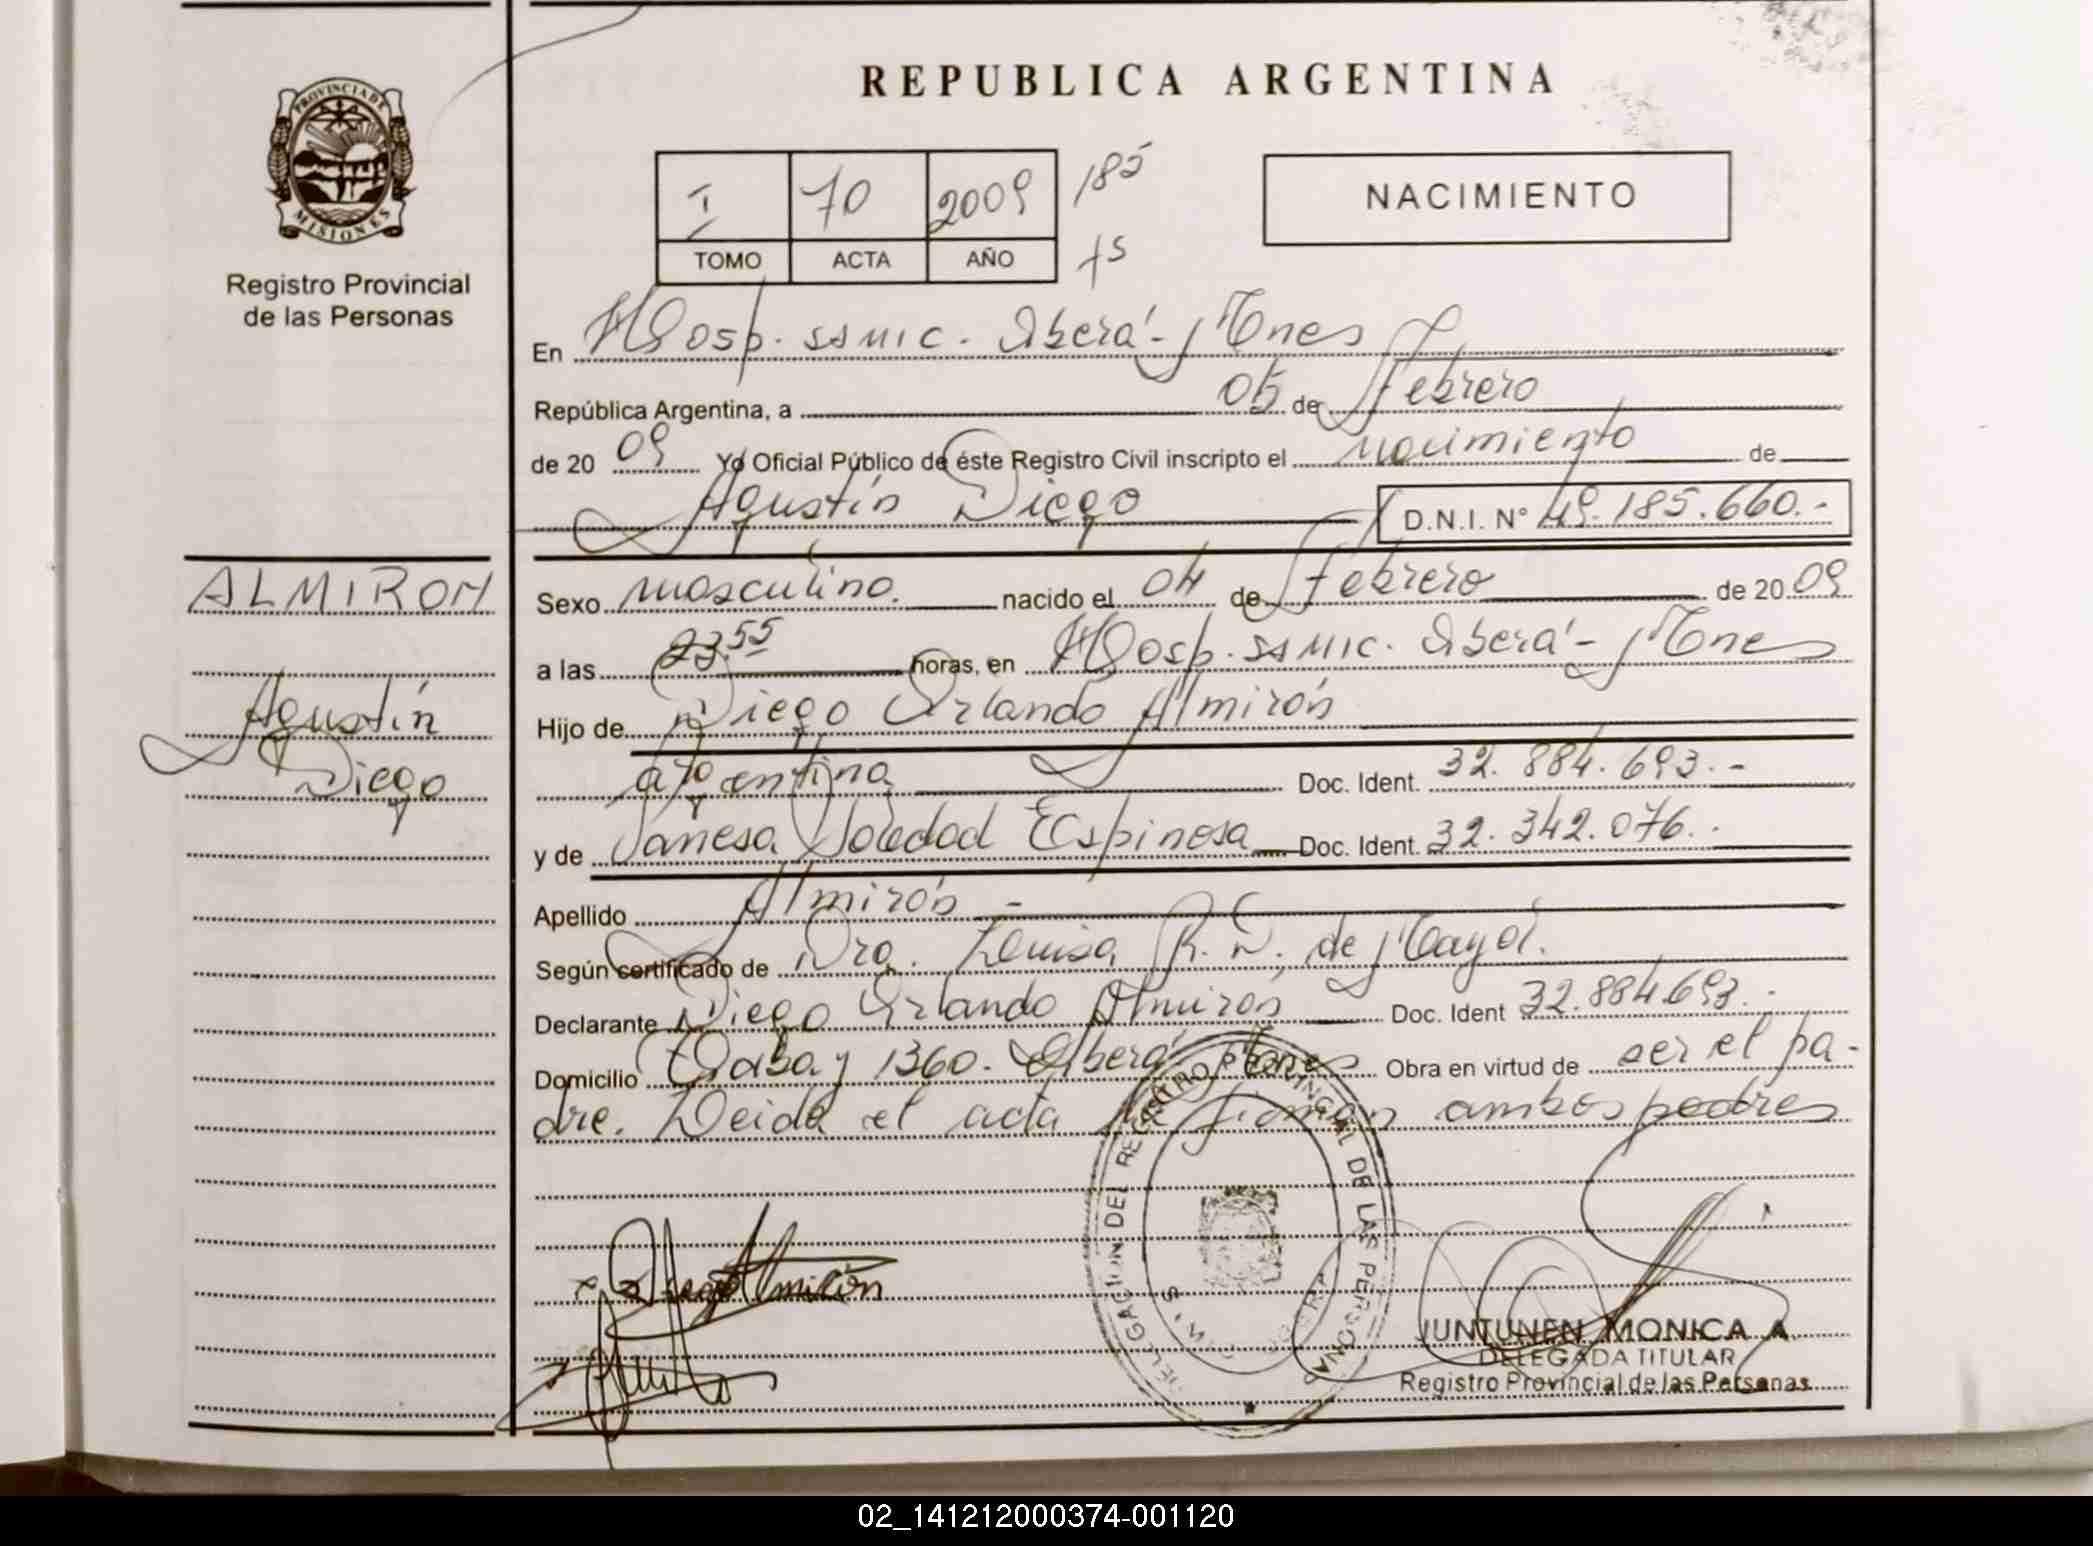 PROVINCIA DE
MISIONES
Registro Provincial
de las Personas
REPUBLICA ARGENTINA
I 70 2009 185
TOMO ACTA AÑO 75
NACIMIENTO
En Hosp. SAMIC. Oberá - Mnes
República Argentina, a 05 de Febrero
de 20 09 Yo Oficial Público de éste Registro Civil inscripto el nacimiento de
Agustín Diego D.N.I. N° 49.185.660.-
ALMIRON
Agustín
Diego
Sexo masculino. nacido el 04 de Febrero de 20 09
a las 23.55 horas, en Hosp. SAMIC. Oberá - Mnes
Hijo de Diego Orlando Almirón
argentina Doc. Ident. 32.884.693.-
y de Vanesa Soledad Espinosa Doc. Ident. 32.342.076.-
Apellido Almirón -
Según certificado de Dra. Luisa R. de
Declarante Diego Orlando Almirón Doc. Ident 32.884.693.-
Domicilio 1360. Oberá Mnes Obra en virtud de ser el pa-
dre. Leida el acta la firman ambos padres
Diego Almirón
DELEGACION DEL REGISTRO PROVINCIAL DE LAS PERSONAS
JUNTUNEN MONICA A.
DELEGADA TITULAR
Registro Provincial de las Personas
02_141212000374-001120